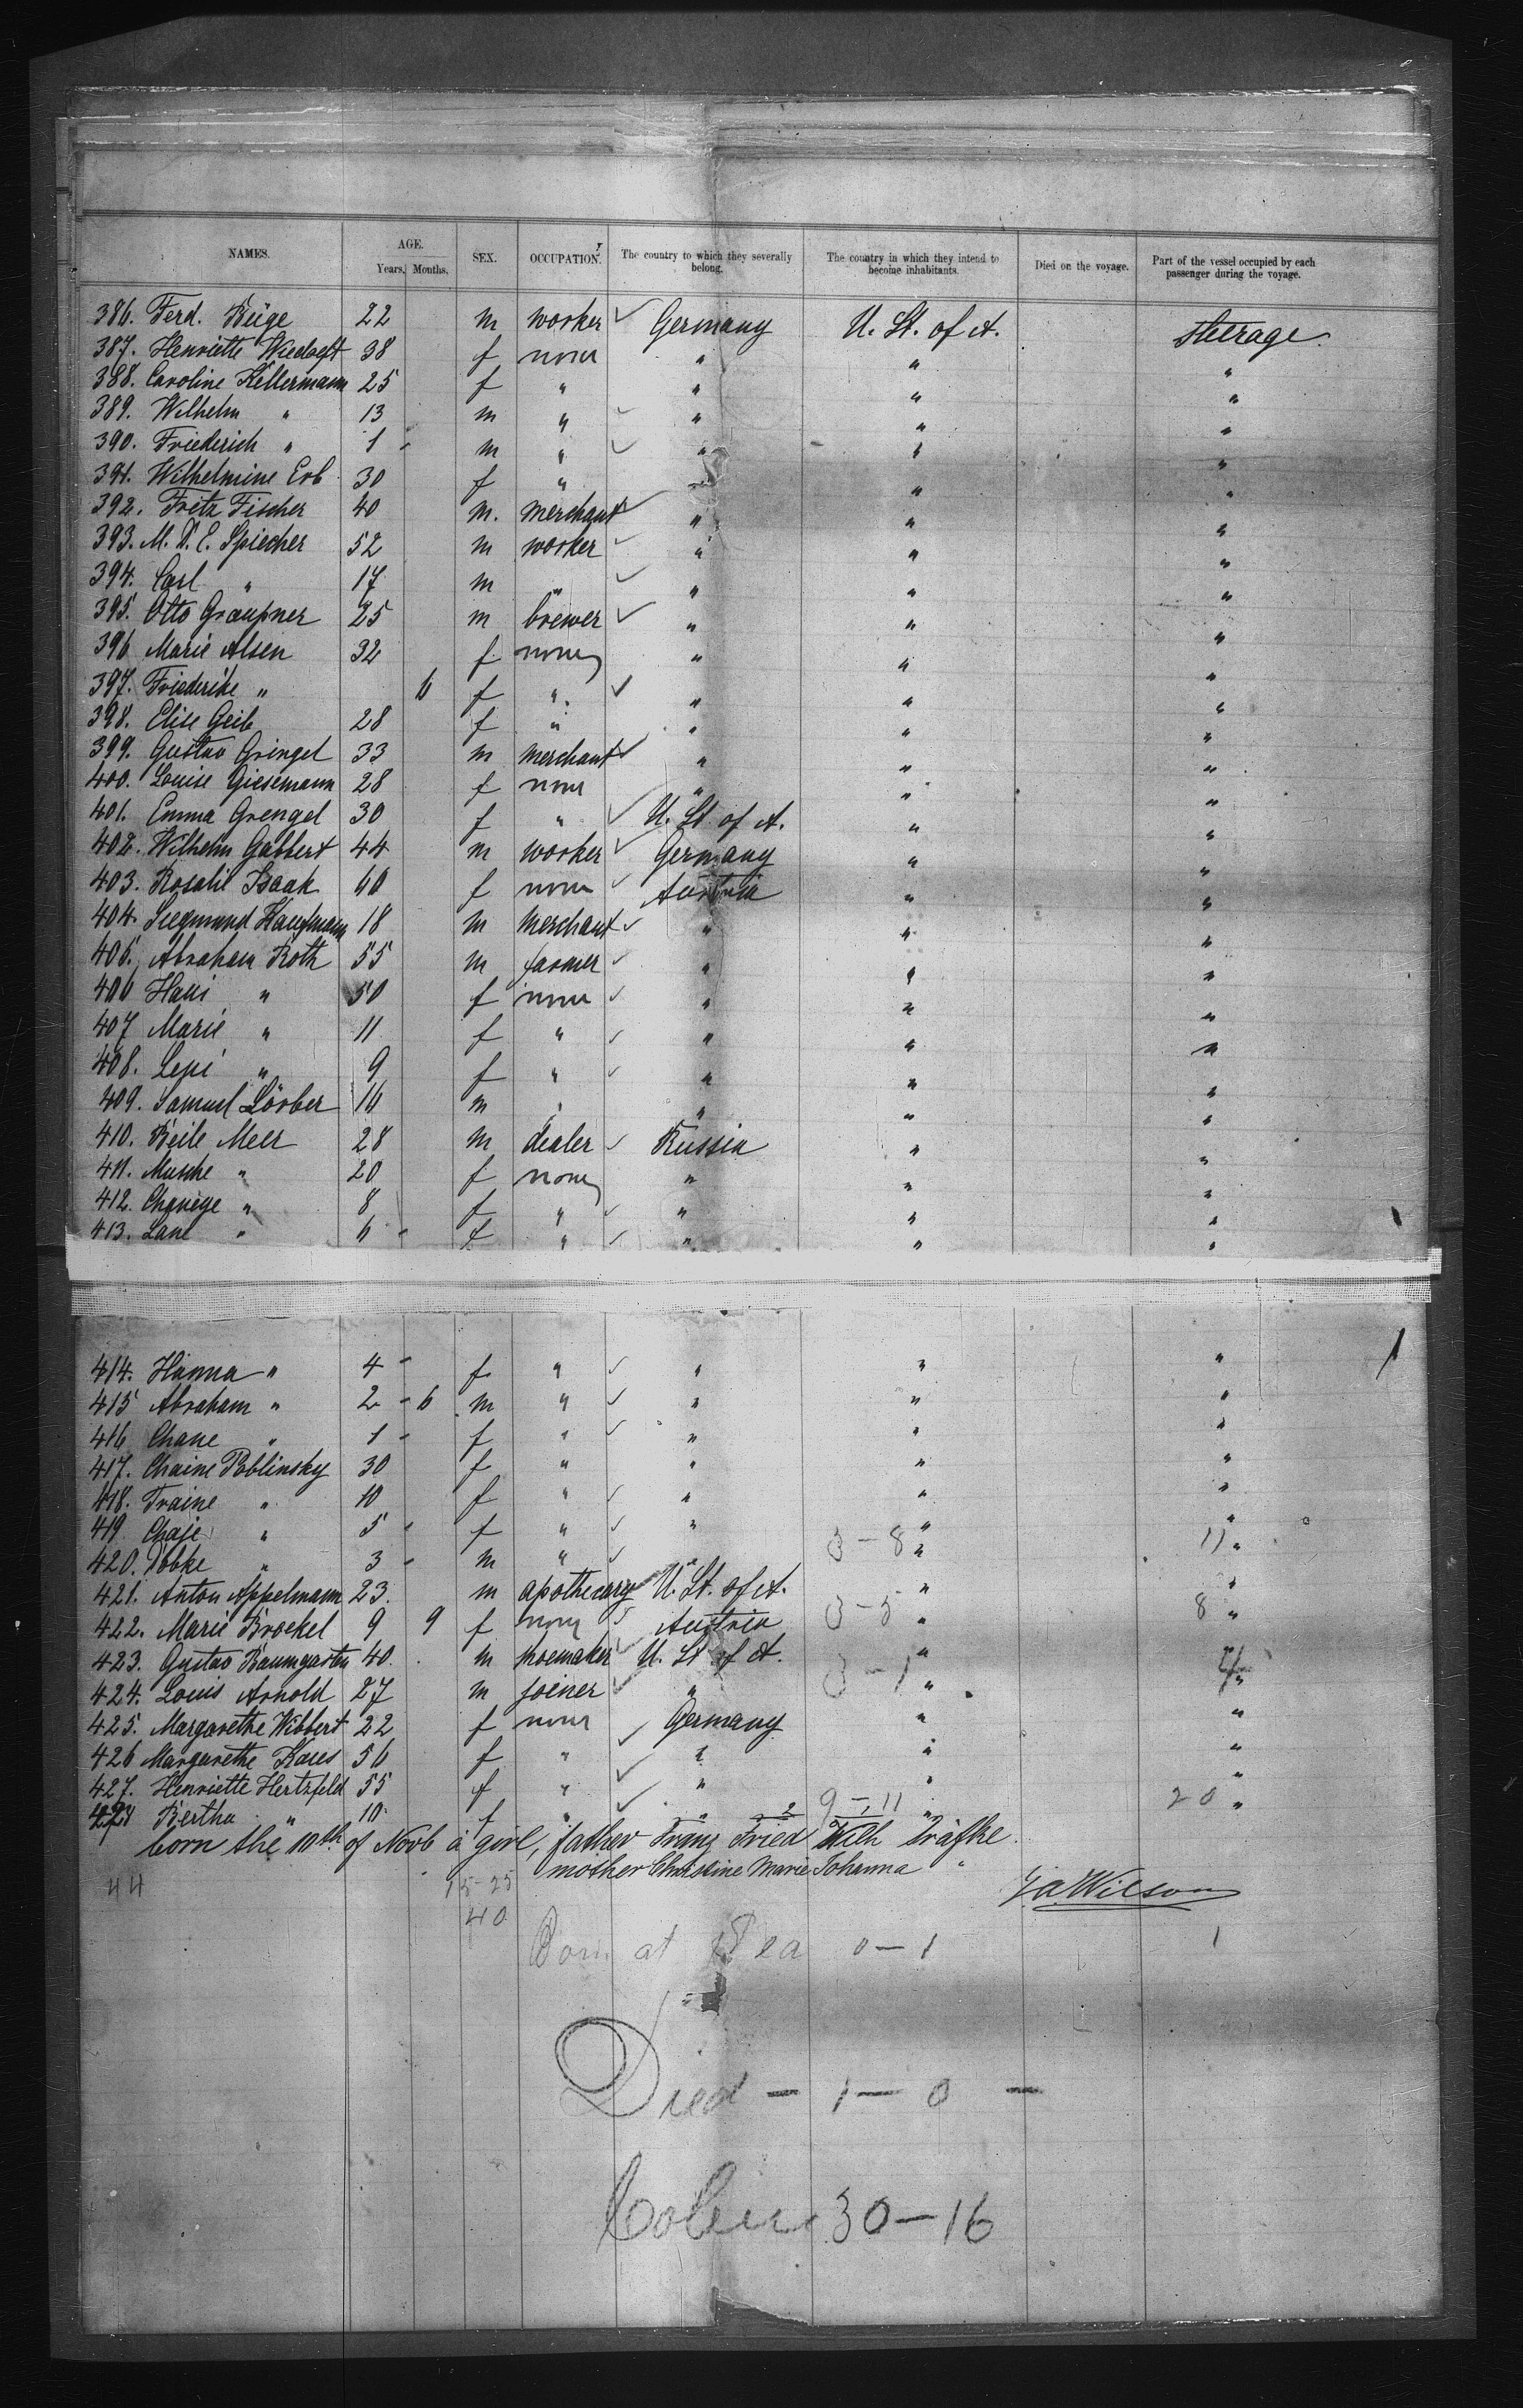 NAMES. AGE. Years. Months. SEX. OCCUPATION. The country to which they severally belong. The country in which they intend to become inhabitants. Died on the voyage. Part of the vessel occupied by each passenger during the voyage.
386. Ferd. Büge 22 m worker Germany U. St. of A. Steerage
387. Henriette 38 f none " " "
388. Caroline Kellermann 25 f " " " "
389. Wilhelm " 13 m " " " "
390. Friederich " 1 - m " " " "
391. Wilhelmine Erb 30 f " " " "
392. Fritz Fischer 40 m. merchant " " "
393. M. D. E. Spiecher 52 m worker " " "
394. Carl " 17 m " " " "
395. Otto Graupner 25 m brewer " " "
396 Marie Alsen 32 f none " " "
397. Friederike " 6 f " " " "
398. Elise Geib 28 f " " " "
399. Gustav Gringel 33 m merchant " " "
400. Louise Giesemann 28 f none " " "
401. Emma Grengel 30 f " U. St. of A. " "
402. Wilhelm Gabbert 44 m worker Germany " "
403. Rosalie Isaak 60 f none Austria " "
404. Siegmund Kaufmann 18 m merchant " " "
405. Abraham Roth 55 m farmer " " "
406 Hani " 50 f none " " "
407 Marie " 11 f " " " "
408. Lepi " 9 f " " " "
409. Samuel Lörber 14 m " " " "
410. Beile Meer 28 m dealer Russia " "
411. Musche " 20 f none " " "
412. " 8 f " " " "
413. Lane " 6 - f " " " "
414. Hanna " 4 - f " " " "
415 Abraham " 2 - 6 m " " " "
416 Chane " 1 - f " " " "
417. Chaine Poblinsky 30 f " " " "
418. Traine " 10 f " " " "
419 Chaje " 5 - f " " " "
420. " 3 - m " " 3 - 8 " 11 "
421. Anton Appelmann 23. m apothecary U. St. of A. " "
422. Marie Brockel 9 9 f none Austria 3 - 5 " 8 "
423. Gustav Baumgarten 40. m shoemaker U. St. of A. " "
424. Louis Arnold 27 m joiner " 3 - 1 " "
425. Margarethe Wibbert 22 f none Germany " "
426 Margarethe Kaus 56 f " " " "
427. Henriette Hertzfeld 55 f " " " "
428 Bertha " 10 f " " 9 - 11 " 20 "
born the 10th of Novb a girl, father Franz Fried Wilh Träfke
mother Christine Marie Johanna "
44 15-25 J. A. Wilson
40
Born at Sea 0 - 1 1
Died - 1 - 0 -
30 - 16